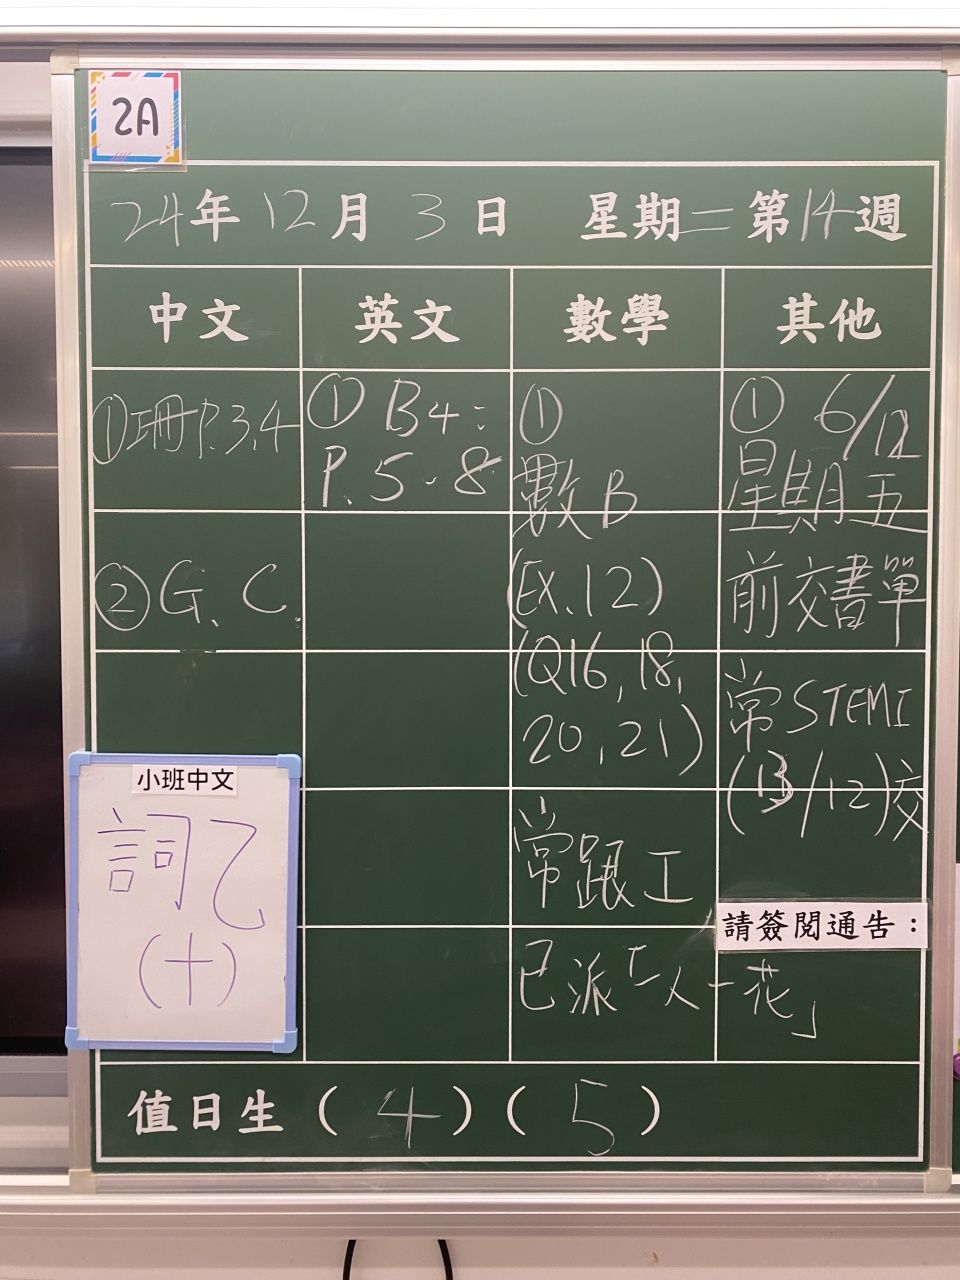 2A
24年12月3日 星期二第14週
中文 英文 數學 其他
①冊P.3,4
②G.C.
小班中文
詞乙
(十)
①B4:
P.5-8
①
數B
(EX.12)
(Q16,18,
20,21)
常跟工
①6/12
星期五
前交書單
常STEM1
(13/12)交
請簽閱通告:
已派「一人一花」
值日生(4)(5)